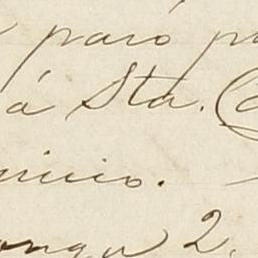 paró p
á Sta. C
nicio.
onga 2.